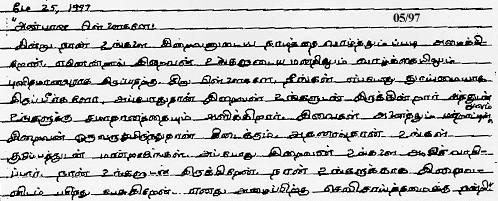 மே 25, 1997
05/97
"அன்பான பிள்ளைகளே!
இன்று நான் உங்களை இறைவனுடைய நாட்டத்தை வாழ்த்தும்படி அழைக்கி
றேன். ஏனெனில் இறைவன் உங்களுடைய மனதிலும் வாழ்க்கையிலும்
புனிதமானவராக இருப்பதற்கு. சிறு பிள்ளைகளே, நீங்கள் எப்போது தூய்மையாக
இருப்பீர்களோ, அப்போதுதான் இறைவன் உங்களுடன் இருக்கின்றார் அத்துடன்
உங்களுக்கு சமாதானத்தையும் அளிக்கிறார். இவைகள் அனைத்தும்
இறைவன் ஒருவரிடமிருந்துதான் கிடைக்கும். ஆகையால்தான் உங்கள்
குடும்பத்துடன் மன்றாடுங்கள். அப்போது இறைவன் உங்களை ஆசீர்வதிப்
பார். நான் உங்களுடன் இருக்கிறேன். நான் உங்களுக்காக இறைவ
னிடம் பரிந்து பேசுகிறேன். எனது அழைப்பிற்கு செவிசாய்த்தமைக்கு நன்றி"